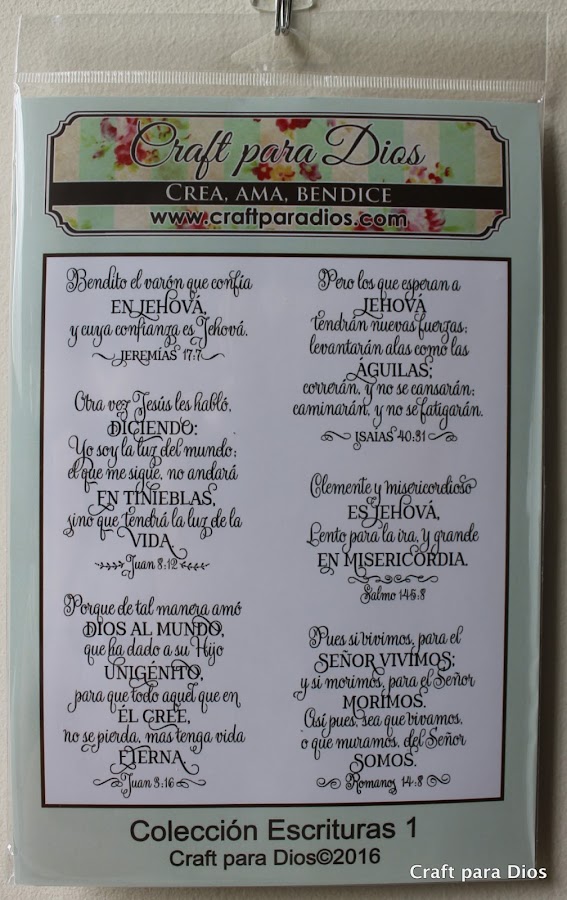 Craft para Dios
CREA, AMA, BENDICE
www.craftparadios.com
Bendito el varón que confía
EN JEHOVÁ,
y cuya confianza es Jehová.
JEREMÍAS 17:7
Otra vez Jesús les habló,
DICIENDO:
Yo soy la luz del mundo;
el que me sigue, no andará
EN TINIEBLAS,
sino que tendrá la luz de la
VIDA
Juan 8:12
Porque de tal manera amó
DIOS AL MUNDO,
que ha dado a su Hijo
UNIGÉNITO,
para que todo aquel que en
ÉL CREE,
no se pierda, mas tenga vida
ETERNA
Juan 3:16
Pero los que esperan a
JEHOVÁ
tendrán nuevas fuerzas;
levantarán alas como las
ÁGUILAS;
correrán, y no se cansarán;
caminarán, y no se fatigarán.
ISAÍAS 40:31
Clemente y misericordioso
ES JEHOVÁ,
Lento para la ira, y grande
EN MISERICORDIA.
Salmo 145:8
Pues si vivimos, para el
SEÑOR VIVIMOS;
y si morimos, para el Señor
MORIMOS.
Así pues, sea que vivamos,
o que muramos, del Señor
SOMOS.
Romanos 14:8
Colección Escrituras 1
Craft para Dios©2016
Craft para Dios